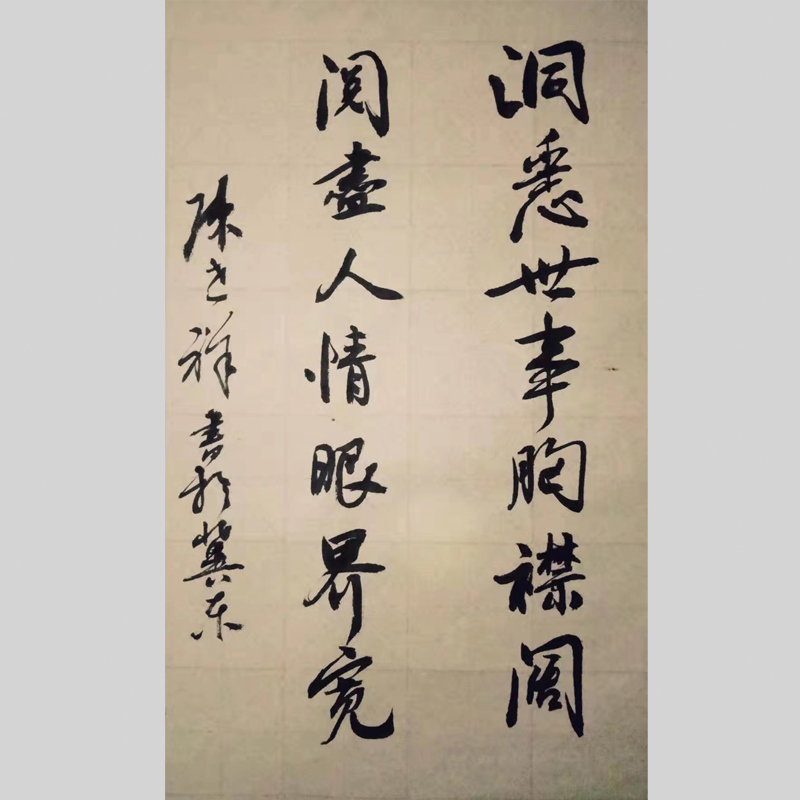 洞悉世事胸襟阔
阅盡人情眼界宽
陈世祥書於冀东